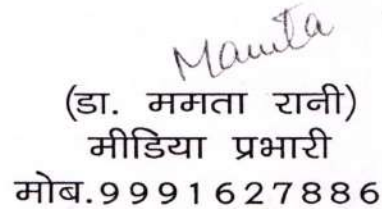 Mamta
(डा. ममता रानी)
मीडिया प्रभारी
मोब.9991627886